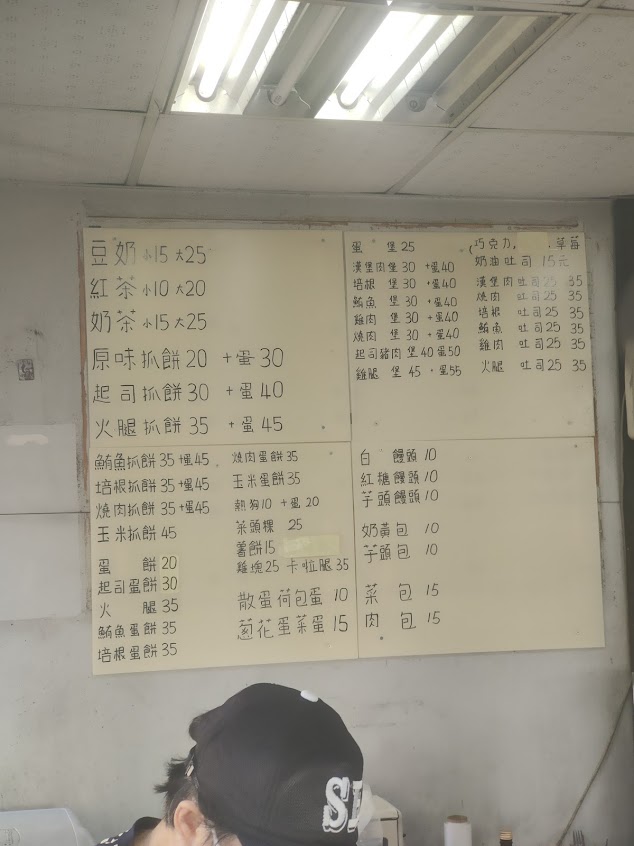 豆奶 小15 大25
紅茶 小10 大20
奶茶 小15 大25
原味抓餅20 +蛋30
起司抓餅30 +蛋40
火腿抓餅35 +蛋45
鮪魚抓餅35+蛋45
培根抓餅35+蛋45
燒肉抓餅35+蛋45
玉米抓餅45
蛋 餅20
起司蛋餅30
火 腿35
鮪魚蛋餅35
培根蛋餅35
燒肉蛋餅35
玉米蛋餅35
熱狗10 +蛋20
菜頭粿 25
薯餅15
雞塊25 卡啦腿35
散蛋荷包蛋 10
蔥花蛋菜蛋 15
蛋 堡25
漢堡肉堡30 +蛋40
培根 堡30 +蛋40
鮪魚 堡30 +蛋40
雞肉 堡30 +蛋40
燒肉 堡30 +蛋40
起司豬肉堡40蛋50
雞腿 堡45 +蛋55
(巧克力, .草莓
奶油吐司 15元
漢堡肉吐司25 35
燒肉 吐司25 35
培根 吐司25 35
鮪魚 吐司25 35
雞肉 吐司25 35
火腿 吐司25 35
白 饅頭 10
紅糖饅頭 10
芋頭饅頭 10
奶黃包 10
芋頭包 10
菜 包 15
肉 包 15